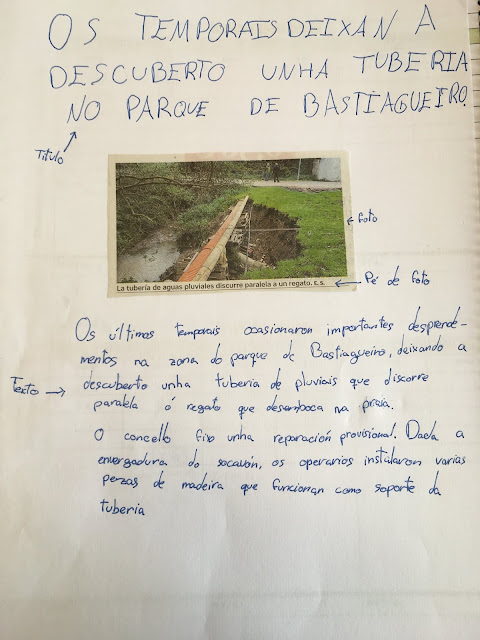 OS TEMPORAIS DEIXAN A
DESCUBERTO UNHA TUBERIA
NO PARQUE DE BASTIAGUEIRO.
Título
foto
La tubería de aguas pluviales discurre paralela a un regato. E. S.
Pé de foto
Os últimos temporais ocasionaron importantes desprende-
mentos na zona do parque de Bastiagueiro, deixando a
Texto
descuberto unha tuberia de pluviais que discorre
paralela ó regato que desemboca na praia.
O concello fixo unha reparación provisional. Dada a
envergadura do socavón, os operarios instalaron varias
pezas de madeira que funcionan como soporte da
tuberia